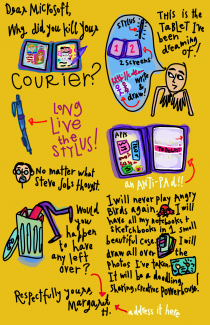 Dear Microsoft,
Why did you kill your
COURIER?
STYLUS
1 2
2 screens
write &
draw
THIS is the
TABLET I've
been
dreaming
of!
LONG
LIVE
the
STYLUS!
No matter what
Steve Jobs thought.
an ANTi-PAD!!
Would
you
happen
to have
any left
over?
I will never play Angry
Birds again. I will
have all my notebooks +
sketchbooks in 1 small
beautiful case. I will
draw all over the
photos I've taken.
It will be a doodling,
sharing, creative powerhouse.
Respectfully yours,
address it here